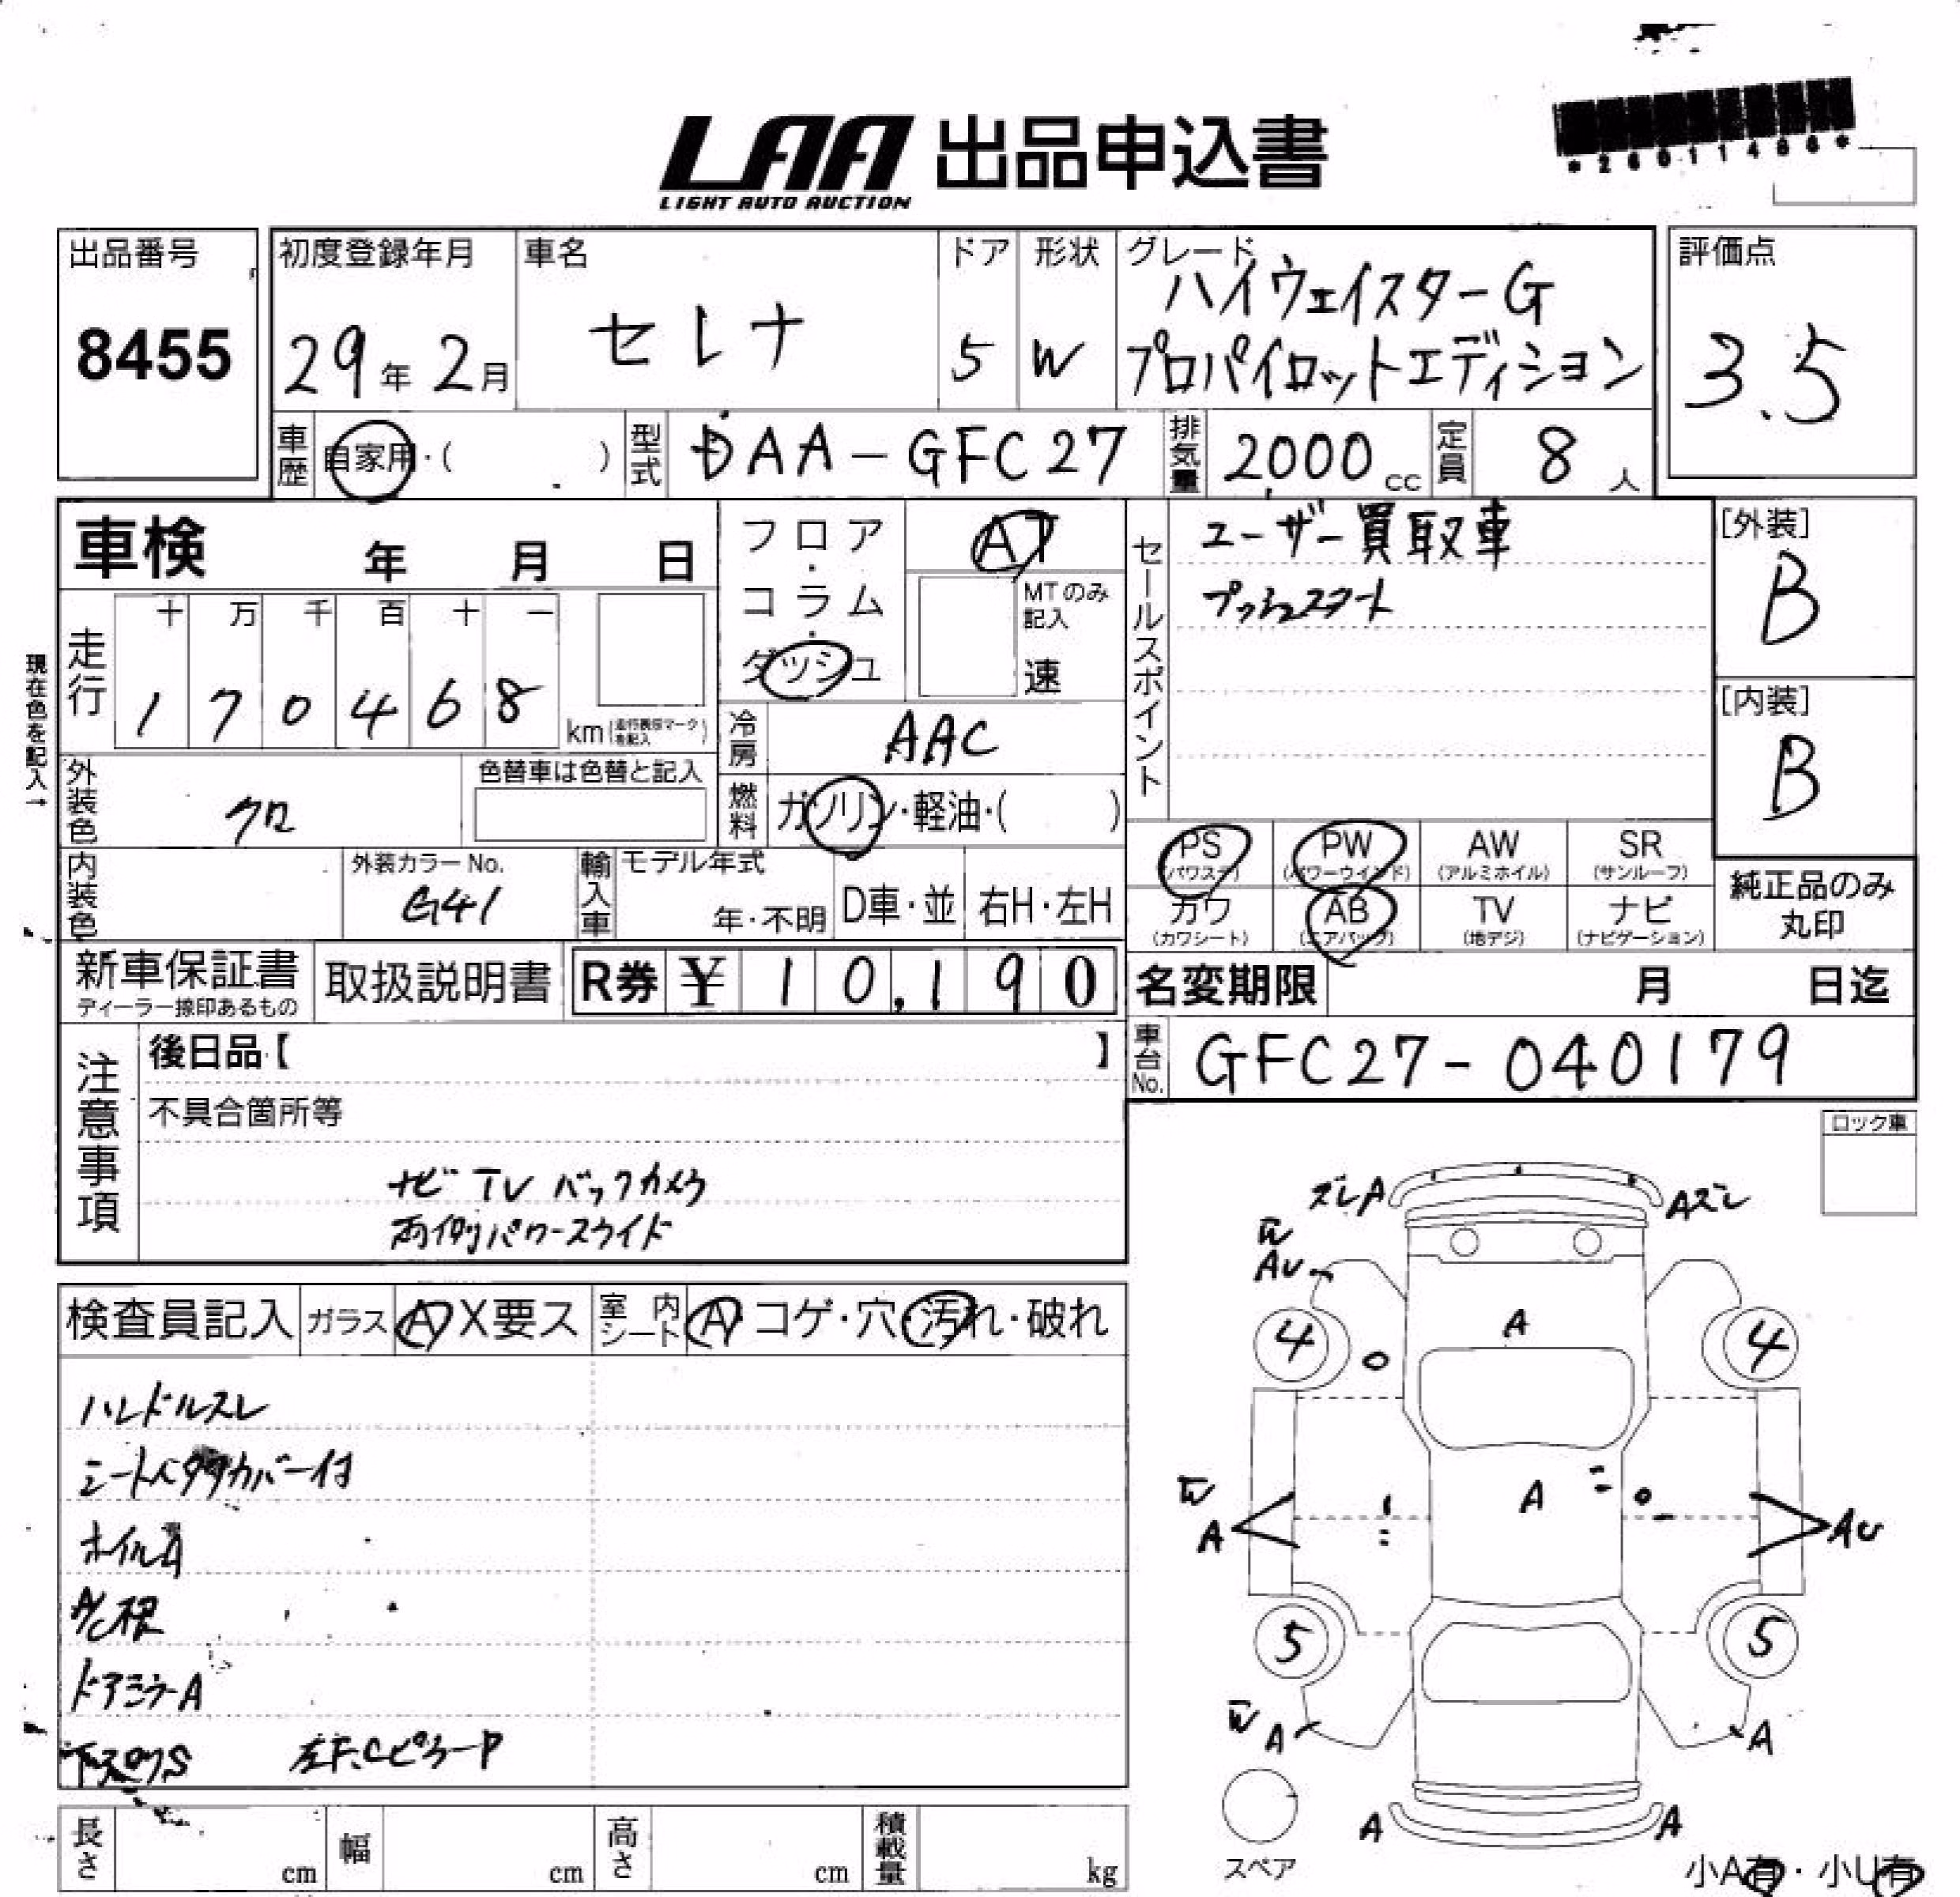 LAA 出品申込書
LIGHT AUTO AUCTION
*26011486*
出品番号
8455
初度登録年月
29年 2月
車名
セレナ
ドア
5
形状
W
グレード
ハイウェイスターG
プロパイロットエディション
評価点
3.5
車歴
自家用・( )
型式
DAA-GFC27
排気量
2000cc
定員
8人
車検 年 月 日
フロア・コラム・ダッシュ
AT
MTのみ記入
速
現在色を記入→
走行
十 万 千 百 十 一
1 7 0 4 6 8
km(走行表示マークを記入)
冷房
AAC
燃料
ガソリン・軽油・( )
外装色
クロ
色替車は色替と記入
内装色
外装カラーNo.
G41
輸入車
モデル年式
年・不明
D車・並
右H・左H
セールスポイント
ユーザー買取車
プッシュスタート
[外装]
B
[内装]
B
PS (パワステ)
PW (パワーウインド)
AW (アルミホイル)
SR (サンルーフ)
カワ (カワシート)
AB (エアバッグ)
TV (地デジ)
ナビ (ナビゲーション)
純正品のみ
丸印
新車保証書
ディーラー捺印あるもの
取扱説明書
R券 ¥ 10,190
名変期限 月 日迄
車台No.
GFC27-040179
注意事項
後日品【 】
不具合箇所等
ナビ TV バックカメラ
両側パワースライド
ロック車
検査員記入
ガラス
A X要ス
室内シート
A コゲ・穴・汚れ・破れ
ハンドルスレ
カバー付
ホイルA
A/C
ドアミラーA
下スリ S
左F.CピラーP
ズレA
Aズレ
W
AU
4
A
4
W
A
A
AU
5
5
W
A
A
A
A
スペア
小A有・小U有
長さ cm
幅 cm
高さ cm
積載量 kg